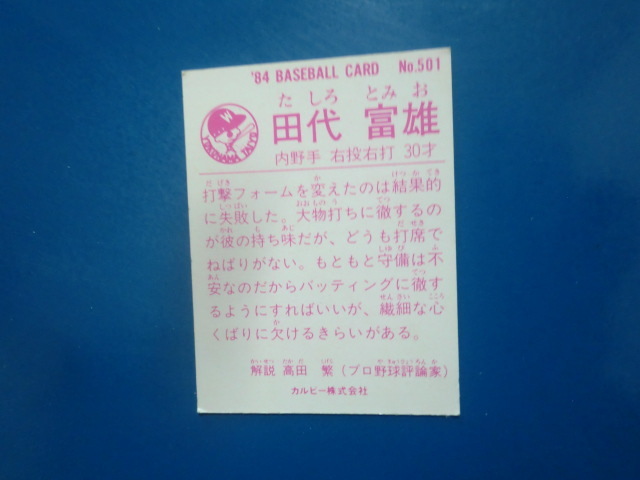 '84 BASEBALL CARD No.501
たしろ とみお
田代 富雄
W
YOKOHAMA TAIYO
内野手 右投右打 30才
打撃フォームを変えたのは結果的
に失敗した。大物打ちに徹するの
が彼の持ち味だが、どうも打席で
ねばりがない。もともと守備は不
安なのだからバッティングに徹す
るようにすればいいが、繊細な心
くばりに欠けるきらいがある。
解説 高田 繁 (プロ野球評論家)
カルビー株式会社